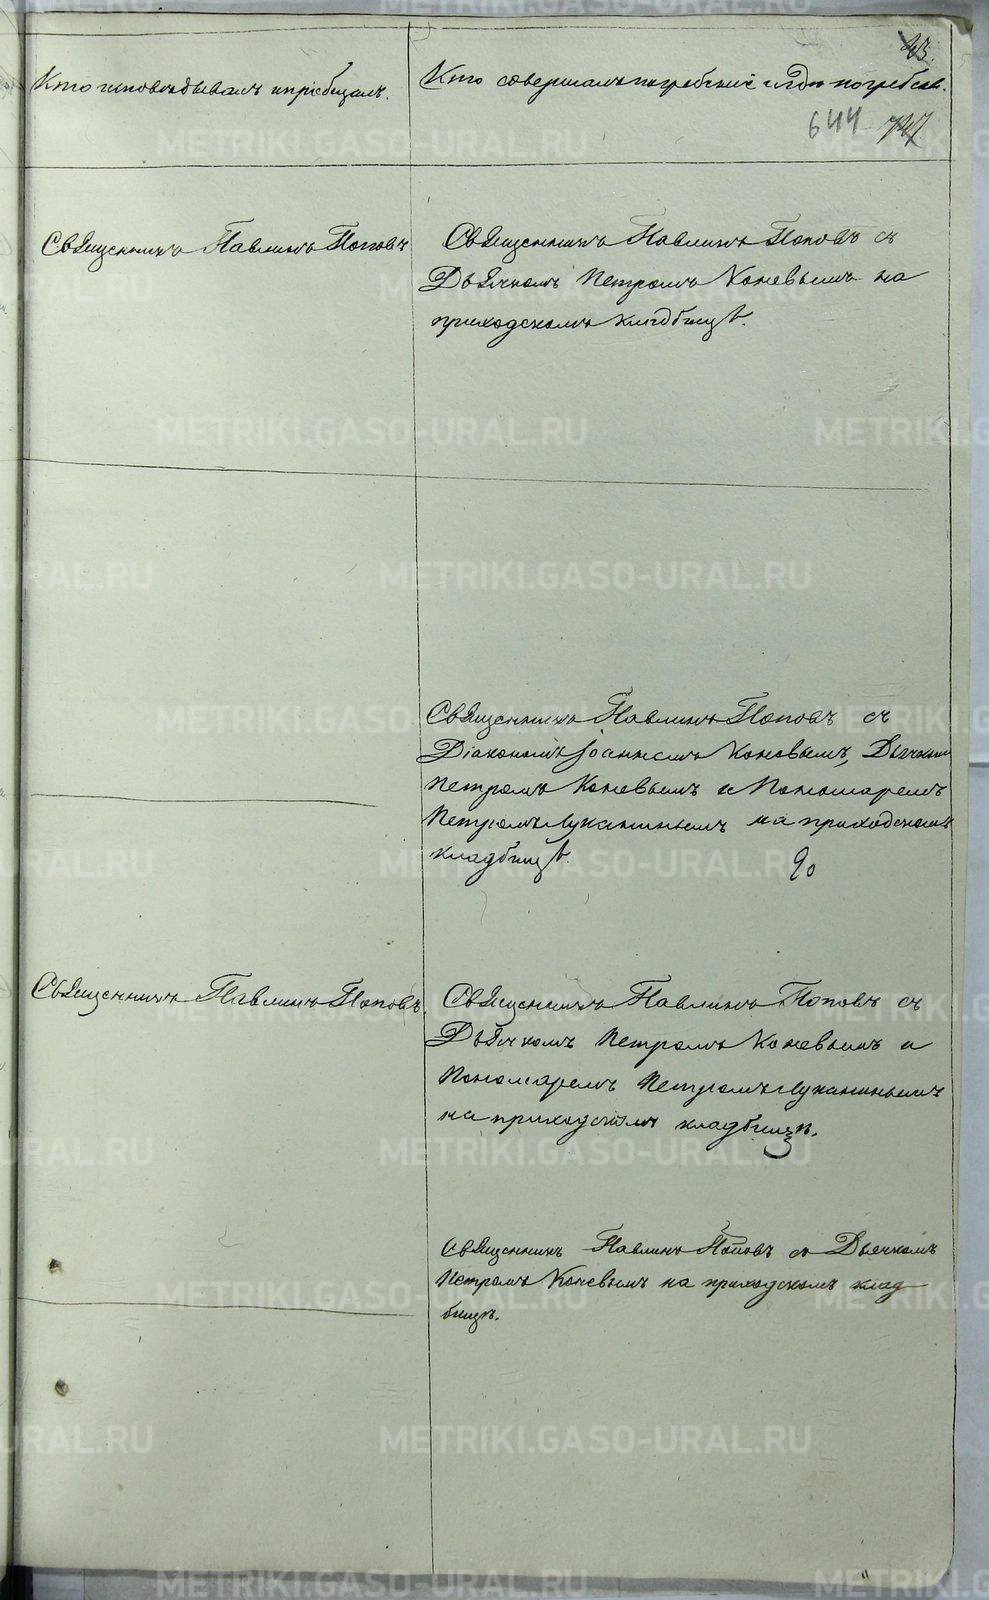 43.
Кто исповѣдывалъ и пріобщалъ.
Кто совершалъ погребеніе и гдѣ погребены.
644 747
Священникъ Павлинъ Поповъ
Священникъ Павлинъ Поповъ съ
Дьячкомъ Петромъ Коневымъ на
приходскомъ кладбищѣ.
Священникъ Павлинъ Поповъ съ
Діакономъ Іоанномъ Коневымъ, Дьячкомъ
Петромъ Коневымъ и Пономаремъ
Петромъ Луканинымъ на приходскомъ
кладбищѣ.
90
Священникъ Павлинъ Поповъ.
Священникъ Павлинъ Поповъ съ
Дьячкомъ Петромъ Коневымъ и
Пономаремъ Петромъ Луканинымъ
на приходскомъ кладбищѣ.
3
Священникъ Павлинъ Поповъ съ Дьячкомъ
Петромъ Коневымъ на приходскомъ клад
бищѣ.
METRIKI.GASO-URAL.RU